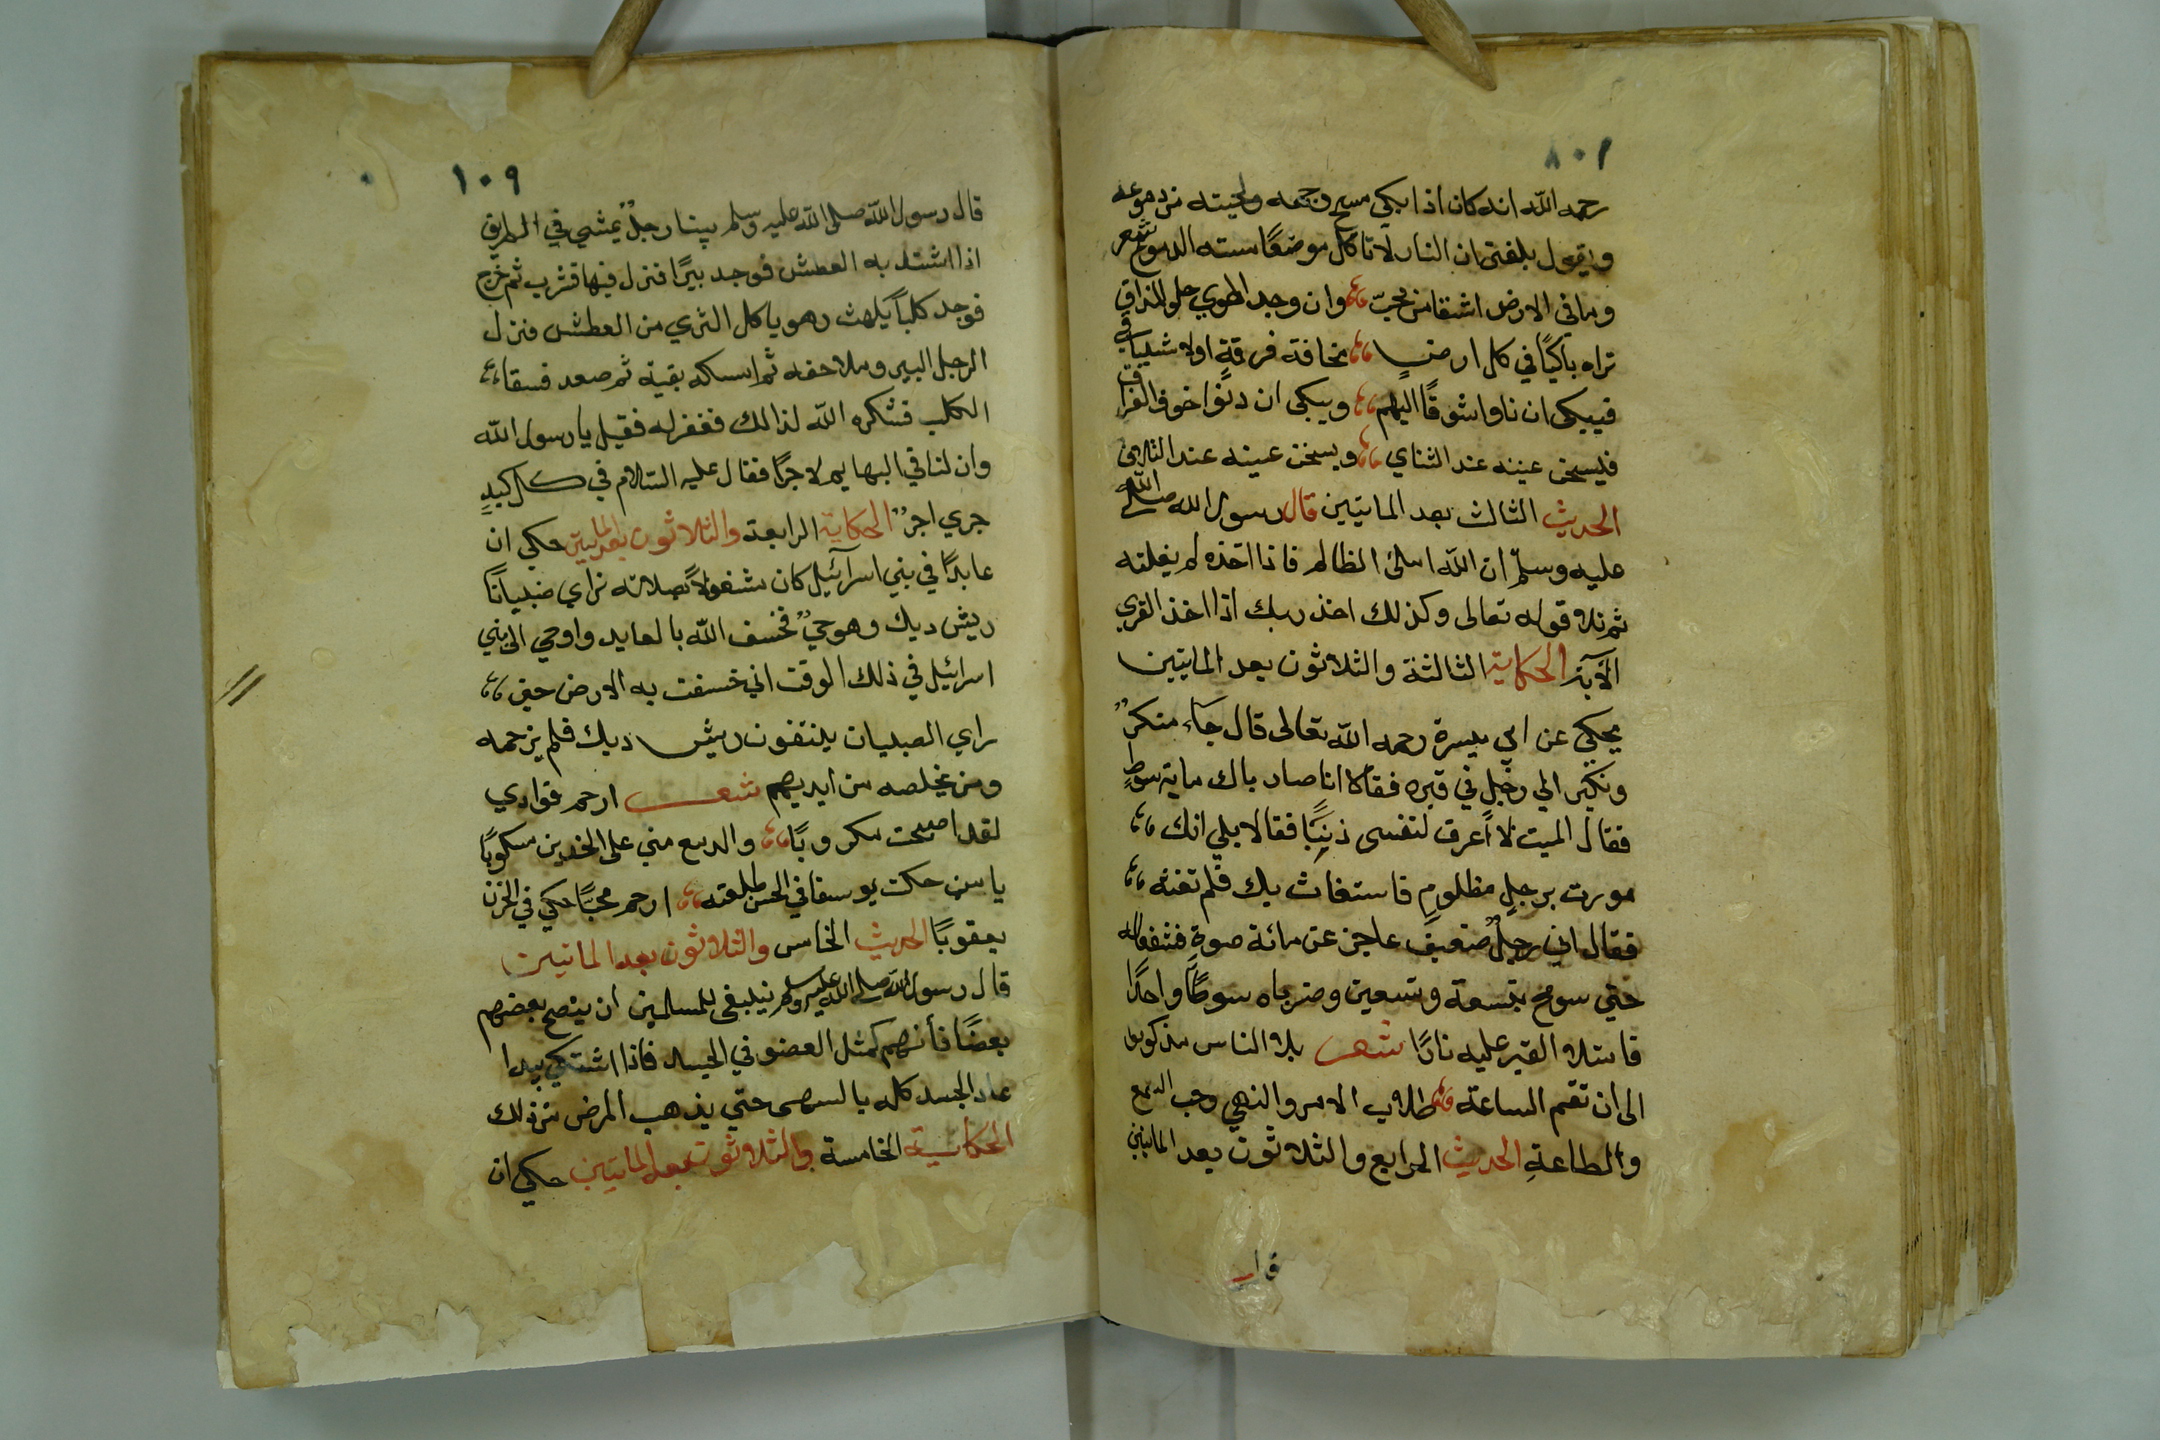 ١٠٨
رحمه الله انه كان اذا بكي مسح وجهه ولحيته من دموعه
ويقول بلغني ان النار لا تاكل موضعًا مسته الدموع شعر
وما في الارض اشقا من محبّ وان وجد الهوي حلو المذاق
تراه باكيًا في كل ارضٍ مخافة فرقةٍ او لاشتياق
فيبكي ان ناوا شوقًا اليهم ويبكي ان دنوا خوف الفراق
فيسخن عينه عند التناي ويسخن عينه عند التلاقي
الحديث الثالث بعد المايتين قال رسول الله صلى الله
عليه وسلم ان الله املى الظالم فاذا اخذه لم يفلته
ثم تلا قوله تعالى وكذلك اخذ ربك اذا اخذ القري
الآية الحكاية الثالثة والثلاثون بعد المايتين
يحكي عن ابي ميسرة رحمه الله تعالى قال جآء منكرٌ
ونكير الي رجلٍ في قبره فقالا انا ضارباك ماية سوطٍ
فقال الميت لا أعرف لنفسى ذنبًا فقالا بلي انك
مورت برجلٍ مظلومٍ فاستغاث بك فلم تغثه
فقال اني رجلٌ ضعيف عاجز عن مائة ضوةٍ فشفعوا له
حتي سومح بتسعة وتسعين وضرباه سوطًا واحدًا
فامتلا القبر عليه نارًا شعر بلا الناس مذ كونوا
الى ان تقم الساعة طلاب الامر والنهي وحب السمع
والطاعةِ الحديث الرابع والثلاثون بعد المايتين
قال
١٠٩
قال رسول الله صلى الله عليه وسلم بينا رجلٌ يمشي في الطريق
اذا اشتد به العطش فوجد بيرًا فنزل فيها فشرب ثم خرج
فوجد كلبًا يلهث وهو ياكل الثري من العطش فنزل
الرجل البير وملا خفه ثم امسكه بفيه ثم صعد فسقا
الكلب فشكره الله لذالك فغفر له فقيل يا رسول الله
وان لنا في البهايم لاجرًا فقال عليه السلام في كل كبدٍ
حري اجرٌ الحكاية الرابعة والثلاثون بعد المايتين حكي ان
عابدًا في بني اسرآئيل كان مشغولاً بصلاته فراي صبيانًا
ريش ديك وهو حيٌ فخسف الله بالعابد واوحي الى بني
اسرائيل في ذلك الوقت اني خسفت به الارض حين
راي الصبيان ينتفون ريش ديك فلم يرحمه
ومن يخلصه من ايديهم شعر ارحم فوادي
لقد اصبحت مكروبًا والدمع مني على الخدين مسكوبًا
يا من حكت يوسفا في الحسن طلعته ارحم محبًا حكي في الحزن
يعقوبًا الحديث الخامس والثلاثون بعد المائتين
قال رسول الله صلى الله عليه وسلم ينبغى للمسلمين ان ينصح بعضهم
بعضًا فأنهم كمثل العضو في الجسد فاذا اشتكي يدا
عاد الجسد كله بالسهر حتي يذهب المرض من ذلك
الحكاية الخامسة والثلاثون بعد المايتين حكي ان